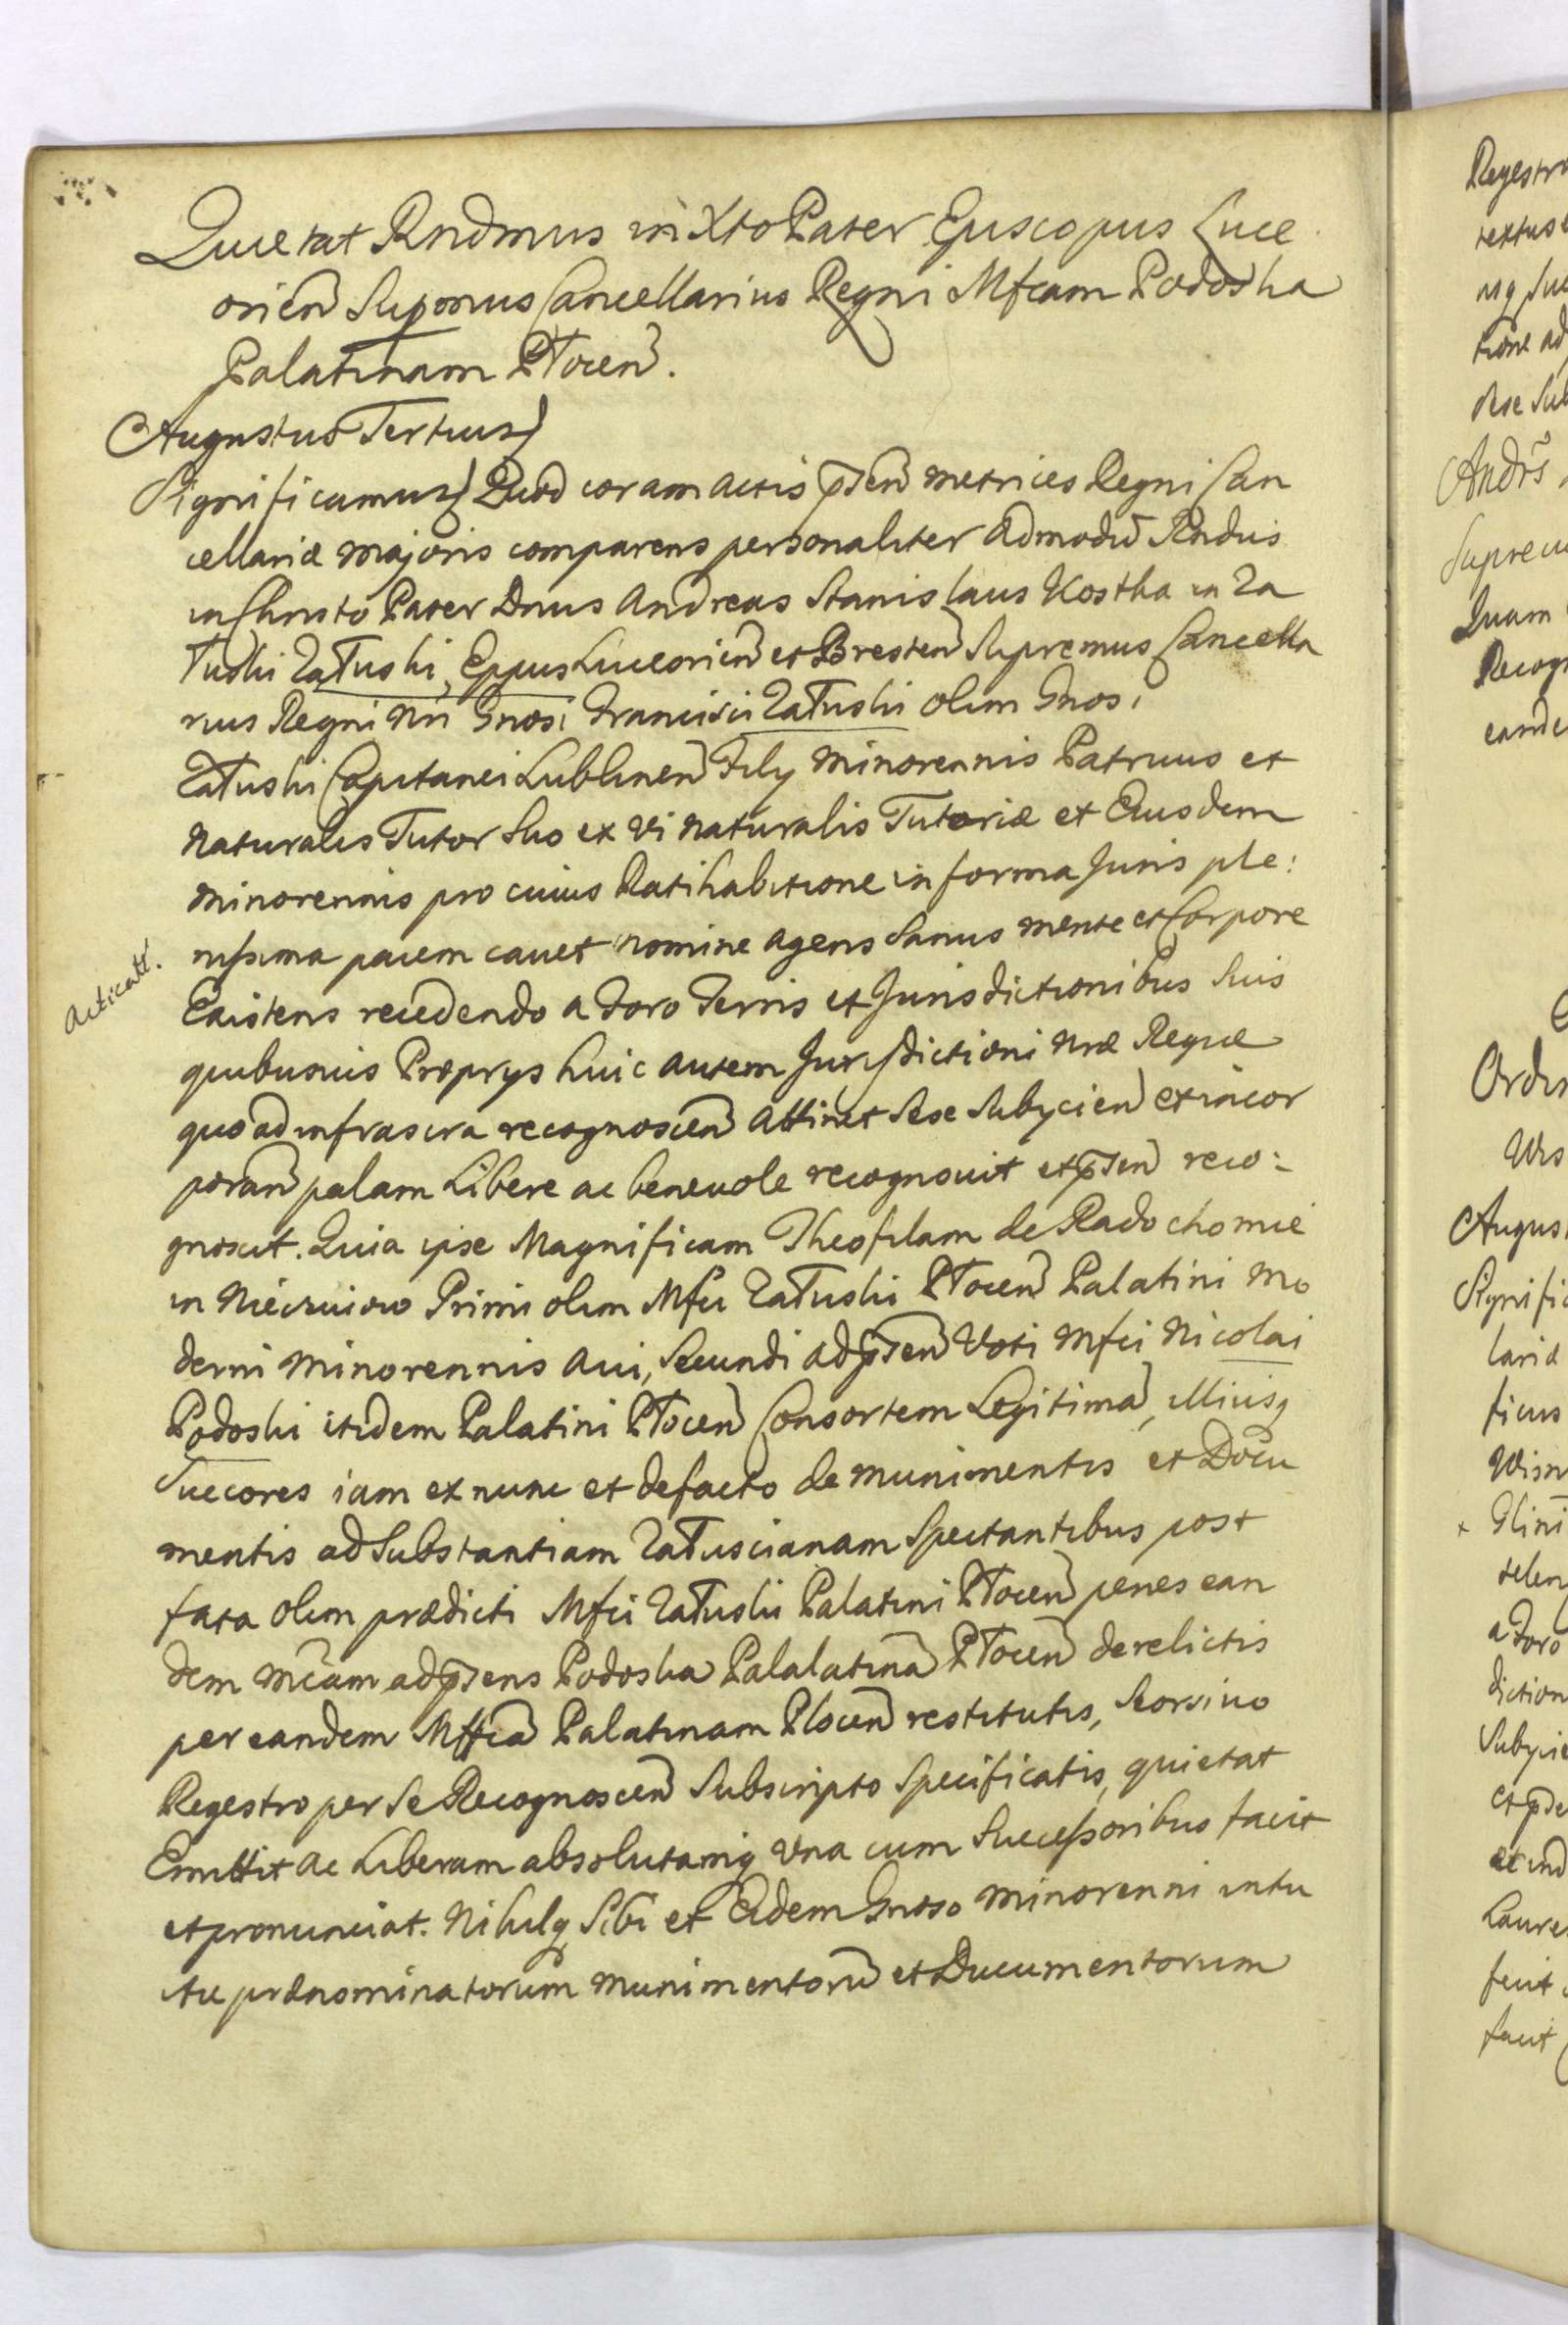 Quietat Rndmus in Xto Pater Episcopus Luce
orień Suprmus Cancellarius Regni Mfcam Podoska
Palatinam Płoceń.
Augustus Tertius
Significamus Quod coram actis pńseń metrices Regni Can
cellariæ majoris comparens personaliter admodū Rndus
in Christo Pater Dnus Andreas Stanislaus Kostka in Za
łuski Załuski, Eppus Luceorień et Bresteń Supremus Cancella
rius Regni Nri Gnosi Francisci Załuski olim Gnosi
Załuski Capitanei Lublineń Filÿ minorennis Patruus et
naturalis Tutor Suo ex vi naturalis Tutoriæ et Eiusdem
minorennis pro cuius Ratihabitione in forma Juris ple:
nissima pacem cavet nomine agens Sanus mente et Corpore
Existens recedendo a Foro Terris et Jurisdictionibus Suis
quibusvis Proprÿs huic autem Jurisdictioni Nræ Regiæ
quo ad infrascra recognosceń attinet Sese Subÿcień et incor
porań palam Libere ac benevole recognovit et pńseń reco:
gnoscit. Quia ipse Magnificam Theofilam de Radochomie
in Nieczuiow Primi olim Mfci Załuski Płoceń Palatini mo
derni minorennis avi, Secundi ad pńseń Voti Mfci Nicolai
Podoski itidem Palatini Płoceń Consortem Legitimā, illiusq
Succores iam ex nunc et de facto de munimentis et Docu
mentis ad Substantiam Załuscianam Spectantibus post
fata olim prædicti Mfci Załuski Palatini Płoceń penes ean
dem mcam ad pńsens Podoska Palalatinā Płoceń derelictis
per eandem Mffcā Palatinam Płoceń restitutis, Seorsivo
Regestro per Se Recognosceń Subscripto Specificatis, quietat
Emittit ac Liberam absolutamq Una cum Successoribus facit
et pronunciat. Nihilq Sibi et Eidem Gnoso minorenni intu
itu prænominatorum munimentorū et Documentorum
Acticatt.
Regestro
textus
mq Su
tione ad
dese Sub
Andrs
Suprem
Quam
Recogn
eande
Ordi
Wis
Augus
Signific
lariæ
ficus
Wisn
Glini
telen
a Foro
diction
Subÿcie
et pńse
ac ind
Laure
fecit
facit